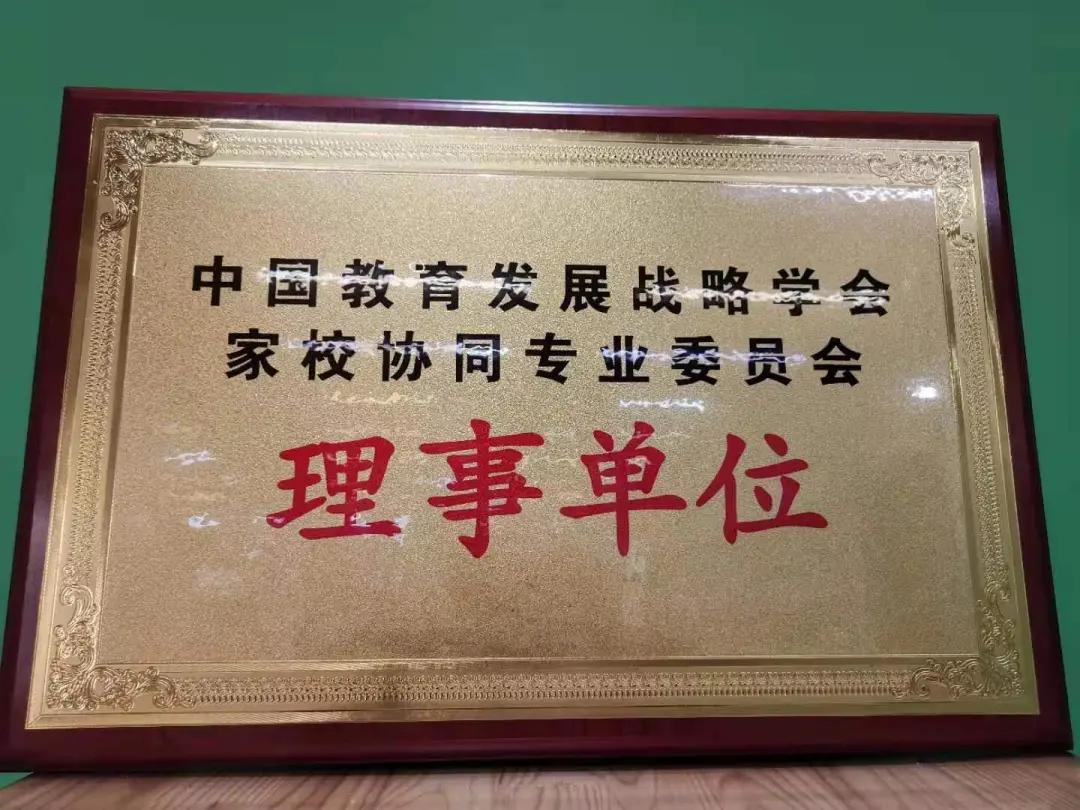 中国教育发展战略学会
家校协同专业委员会
理事单位